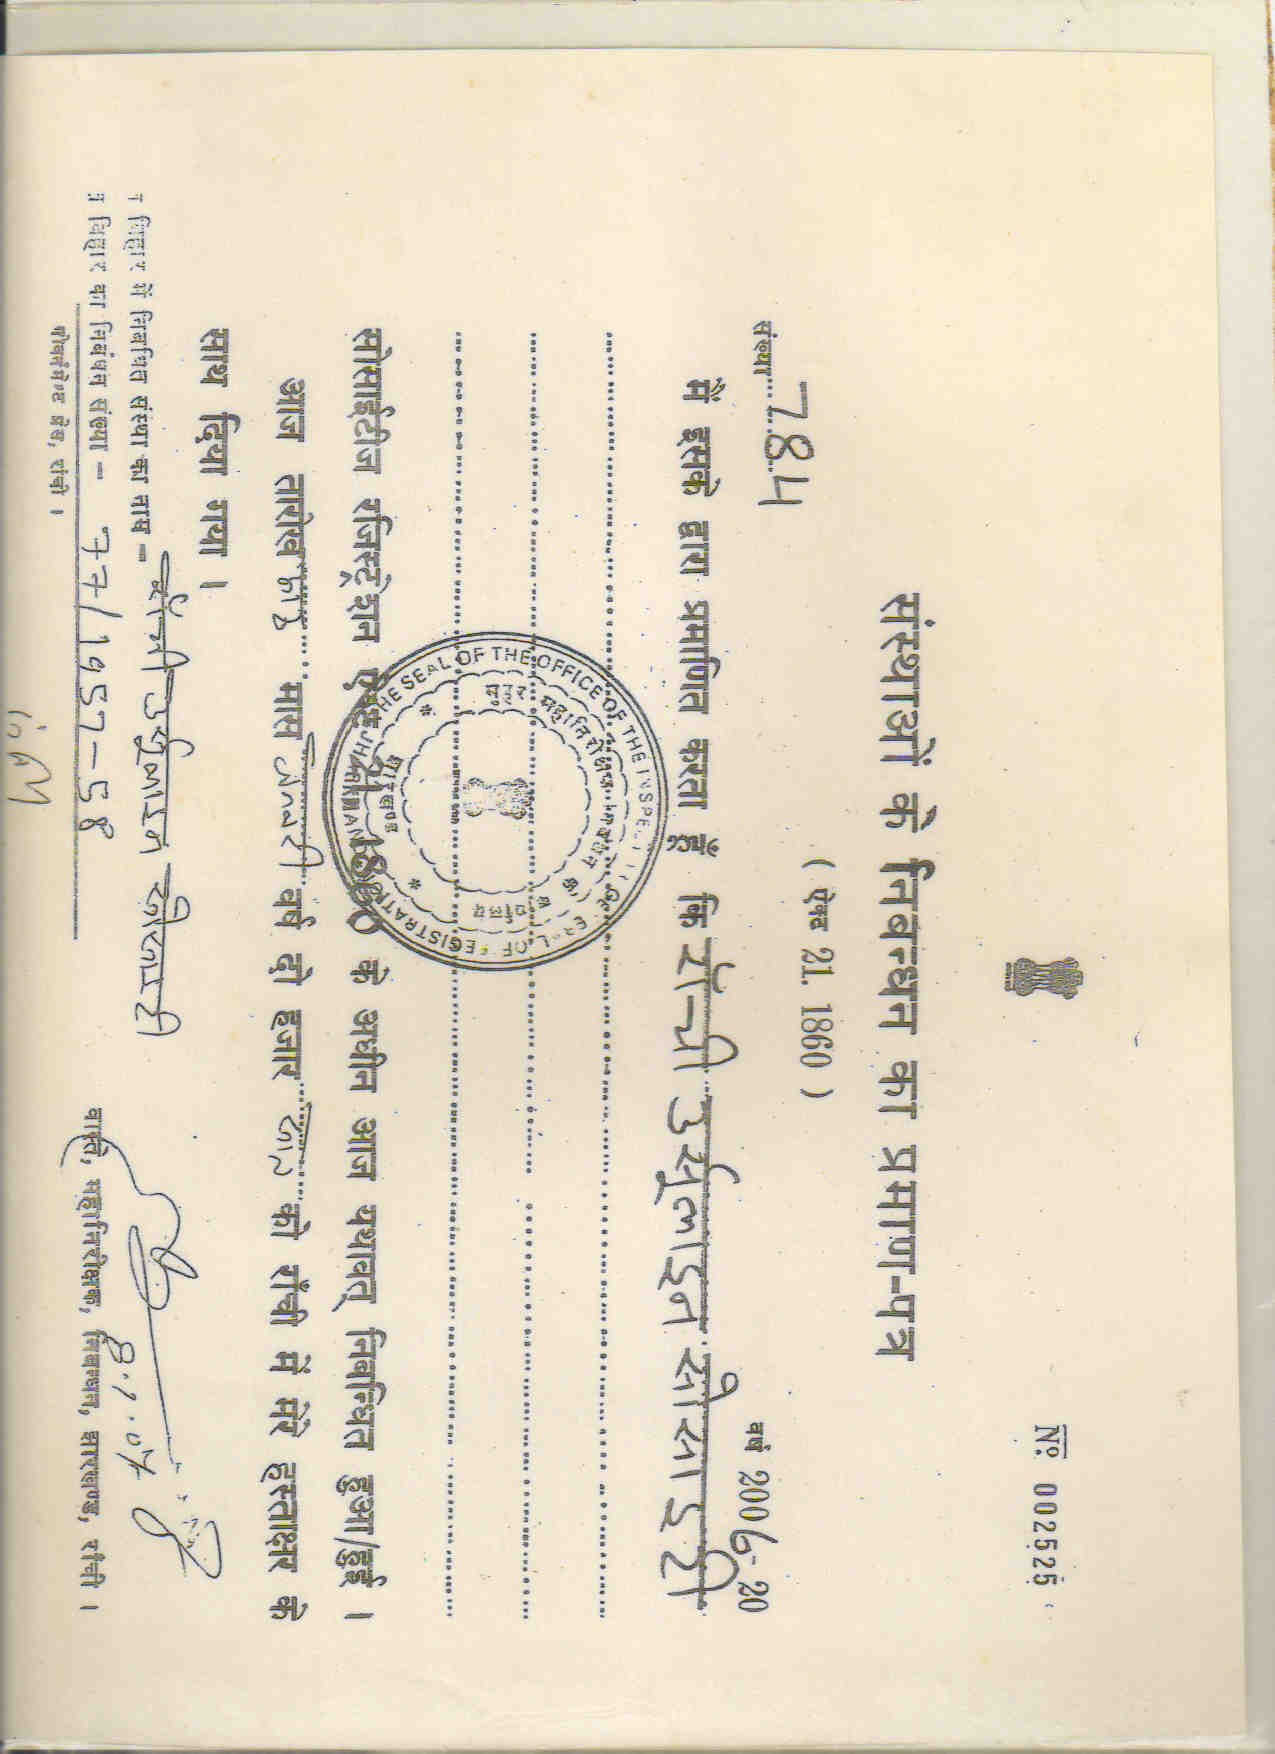 No. 002525
संस्थाओं के निबन्धन का प्रमाण-पत्र
( ऐक्ट 21, 1860 )
संख्या 784 वर्ष 2006-20
मैं इसके द्वारा प्रमाणित करता हूँ कि राँची उर्सुलाइन सोसाइटी
सोसाईटीज रजिस्ट्रेशन ऐक्ट 21, 1860 के अधीन आज यथावत् निबन्धित हुआ/हुई ।
आज तारीख आठ मास जनवरी वर्ष दो हजार सात को राँची में मेरे हस्ताक्षर के
साथ दिया गया ।
THE SEAL OF THE OFFICE OF THE INSPECTOR GENERAL OF REGISTRATION JHARKHAND
झारखण्ड
बिहार में निबंधित संस्था का नाम – राँची उर्सुलाइन सोसाइटी
बिहार का निबंधन संख्या – 77/1957-58
गवर्नमेन्ट प्रेस, रांची ।
8.1.07
वास्ते, महानिरीक्षक, निबन्धन, झारखण्ड, राँची ।